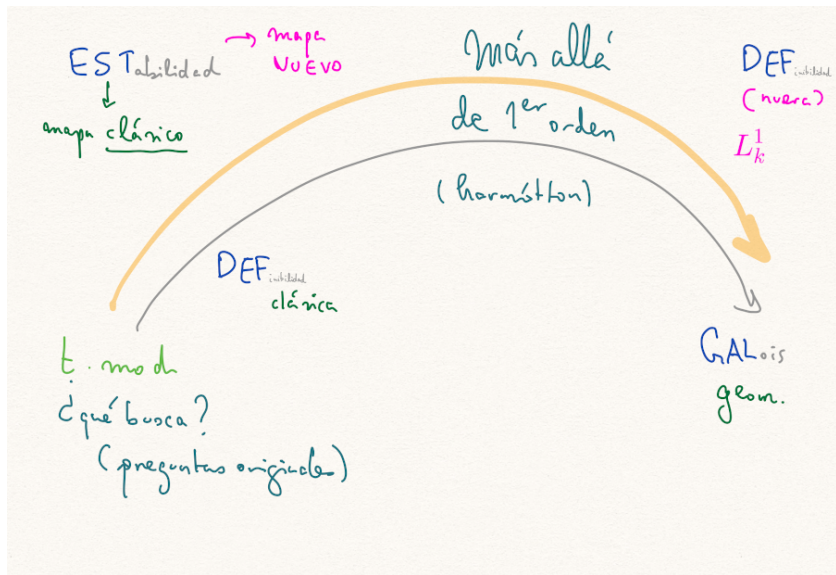 ESTabilidad → mapa
NUEVO
mapa clásico
Más allá
de 1er orden
(harmótton)
DEFinibilidad
(nueva)
L_k^1
DEFinibilidad
clásica
t. mod
¿qué busca?
(preguntas originales)
GALois
geom.